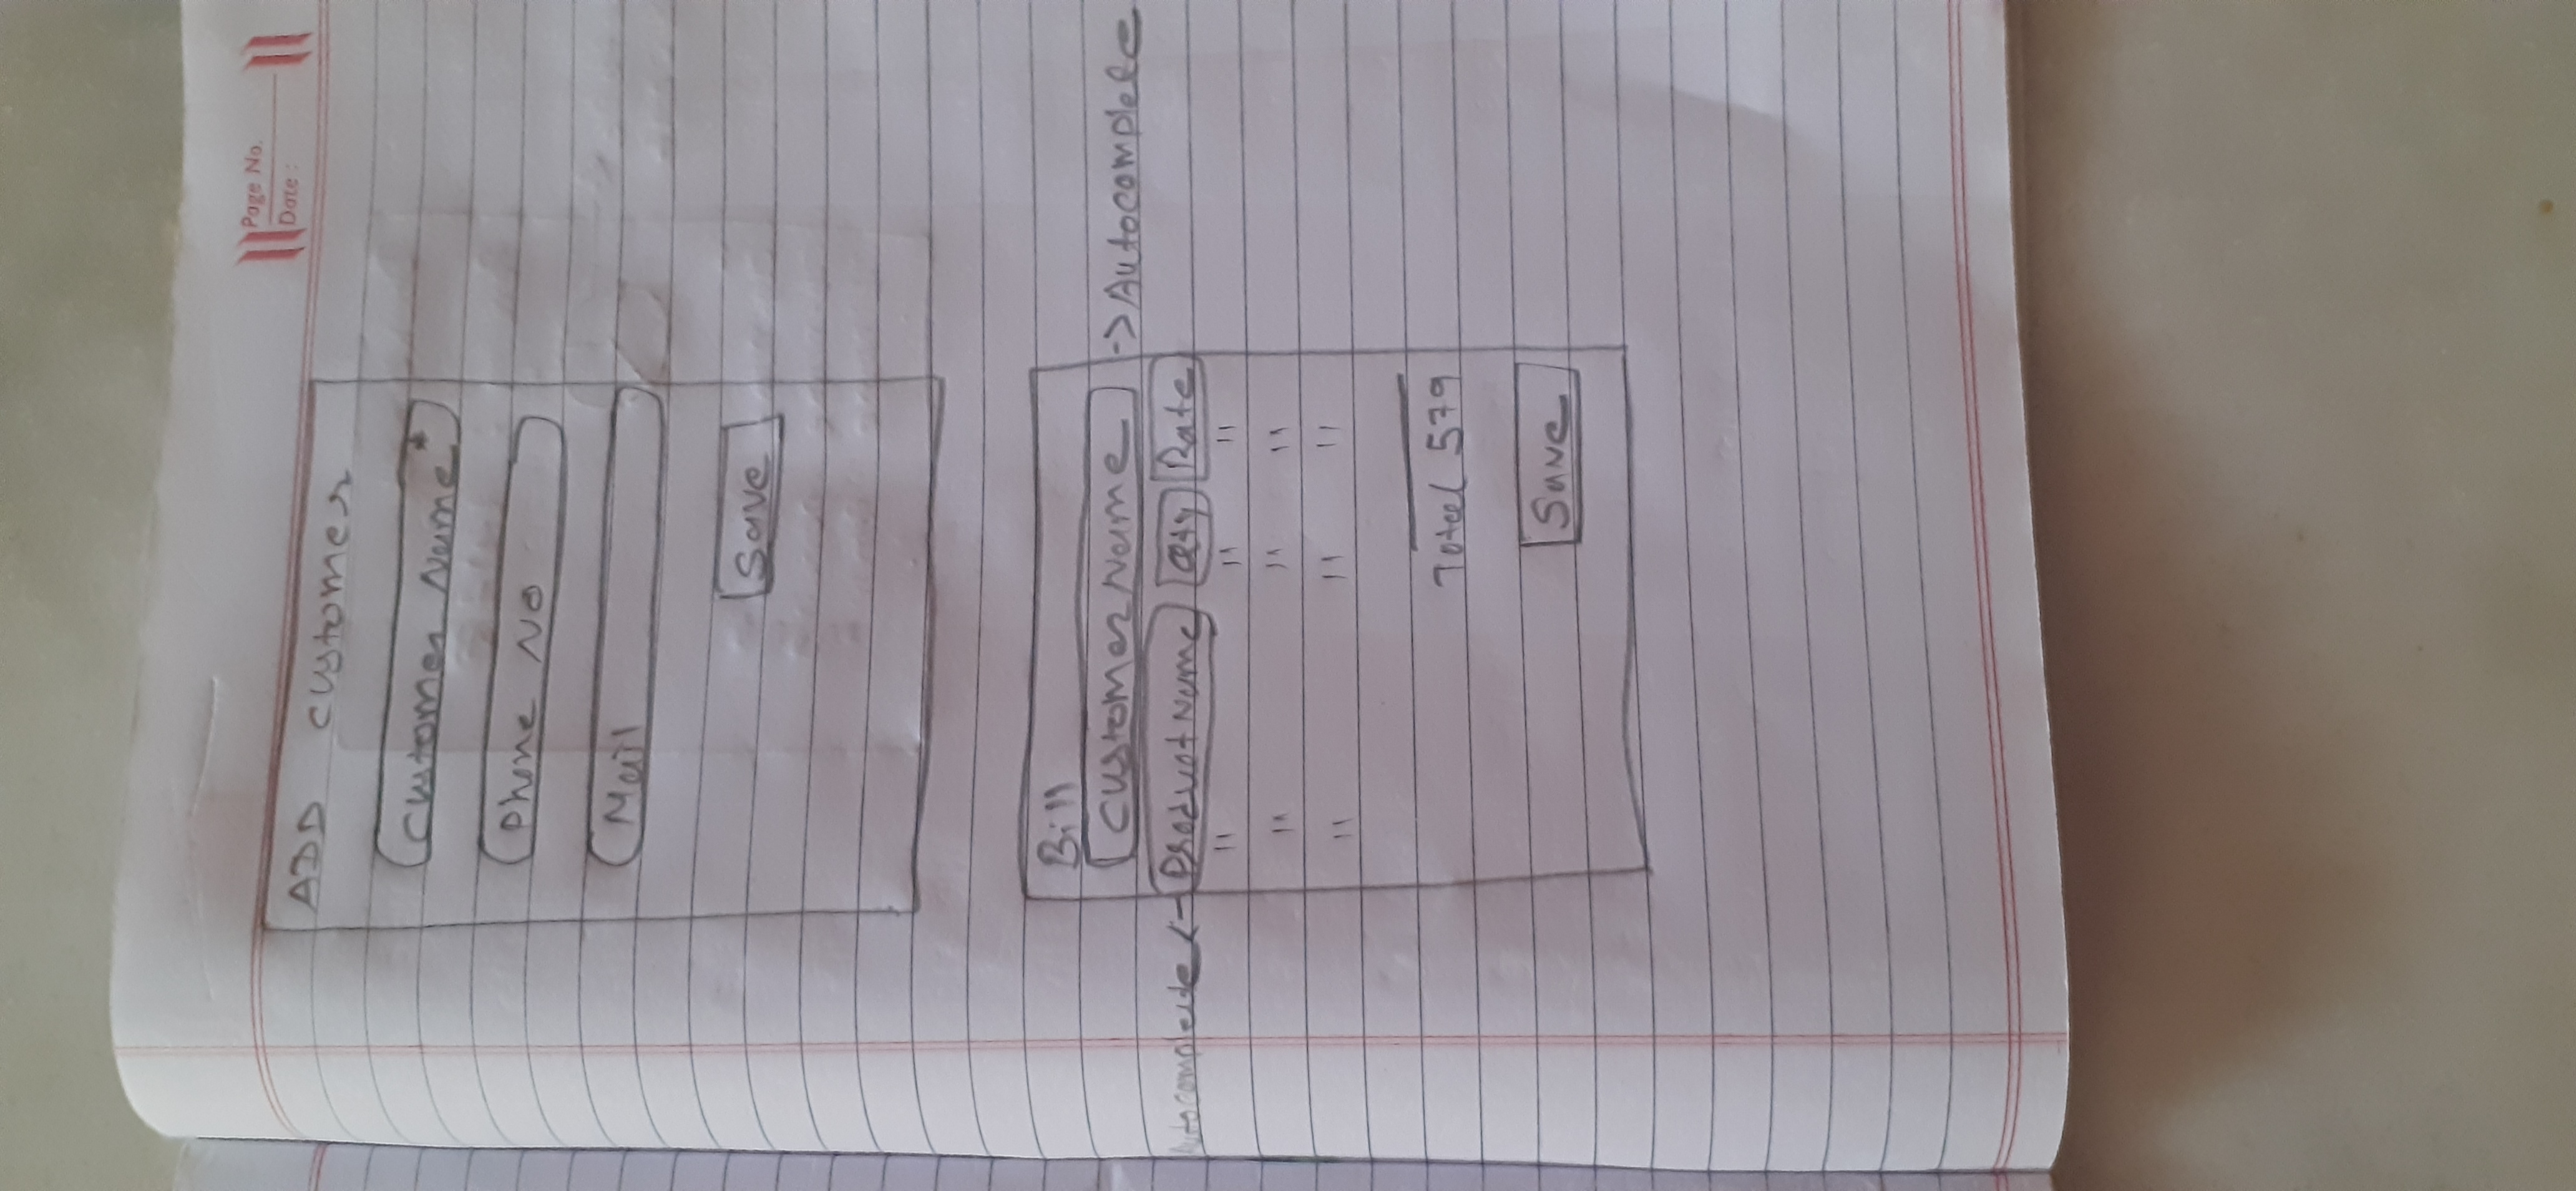 Page No.
Date :
ADD Customer
Customer Name*
Phone No
Mail
Save
Bill
Customer Name -> Autocomplete
Autocomplete <- Product Name Qty Rate
" " "
" " "
" " "
Total 579
Save